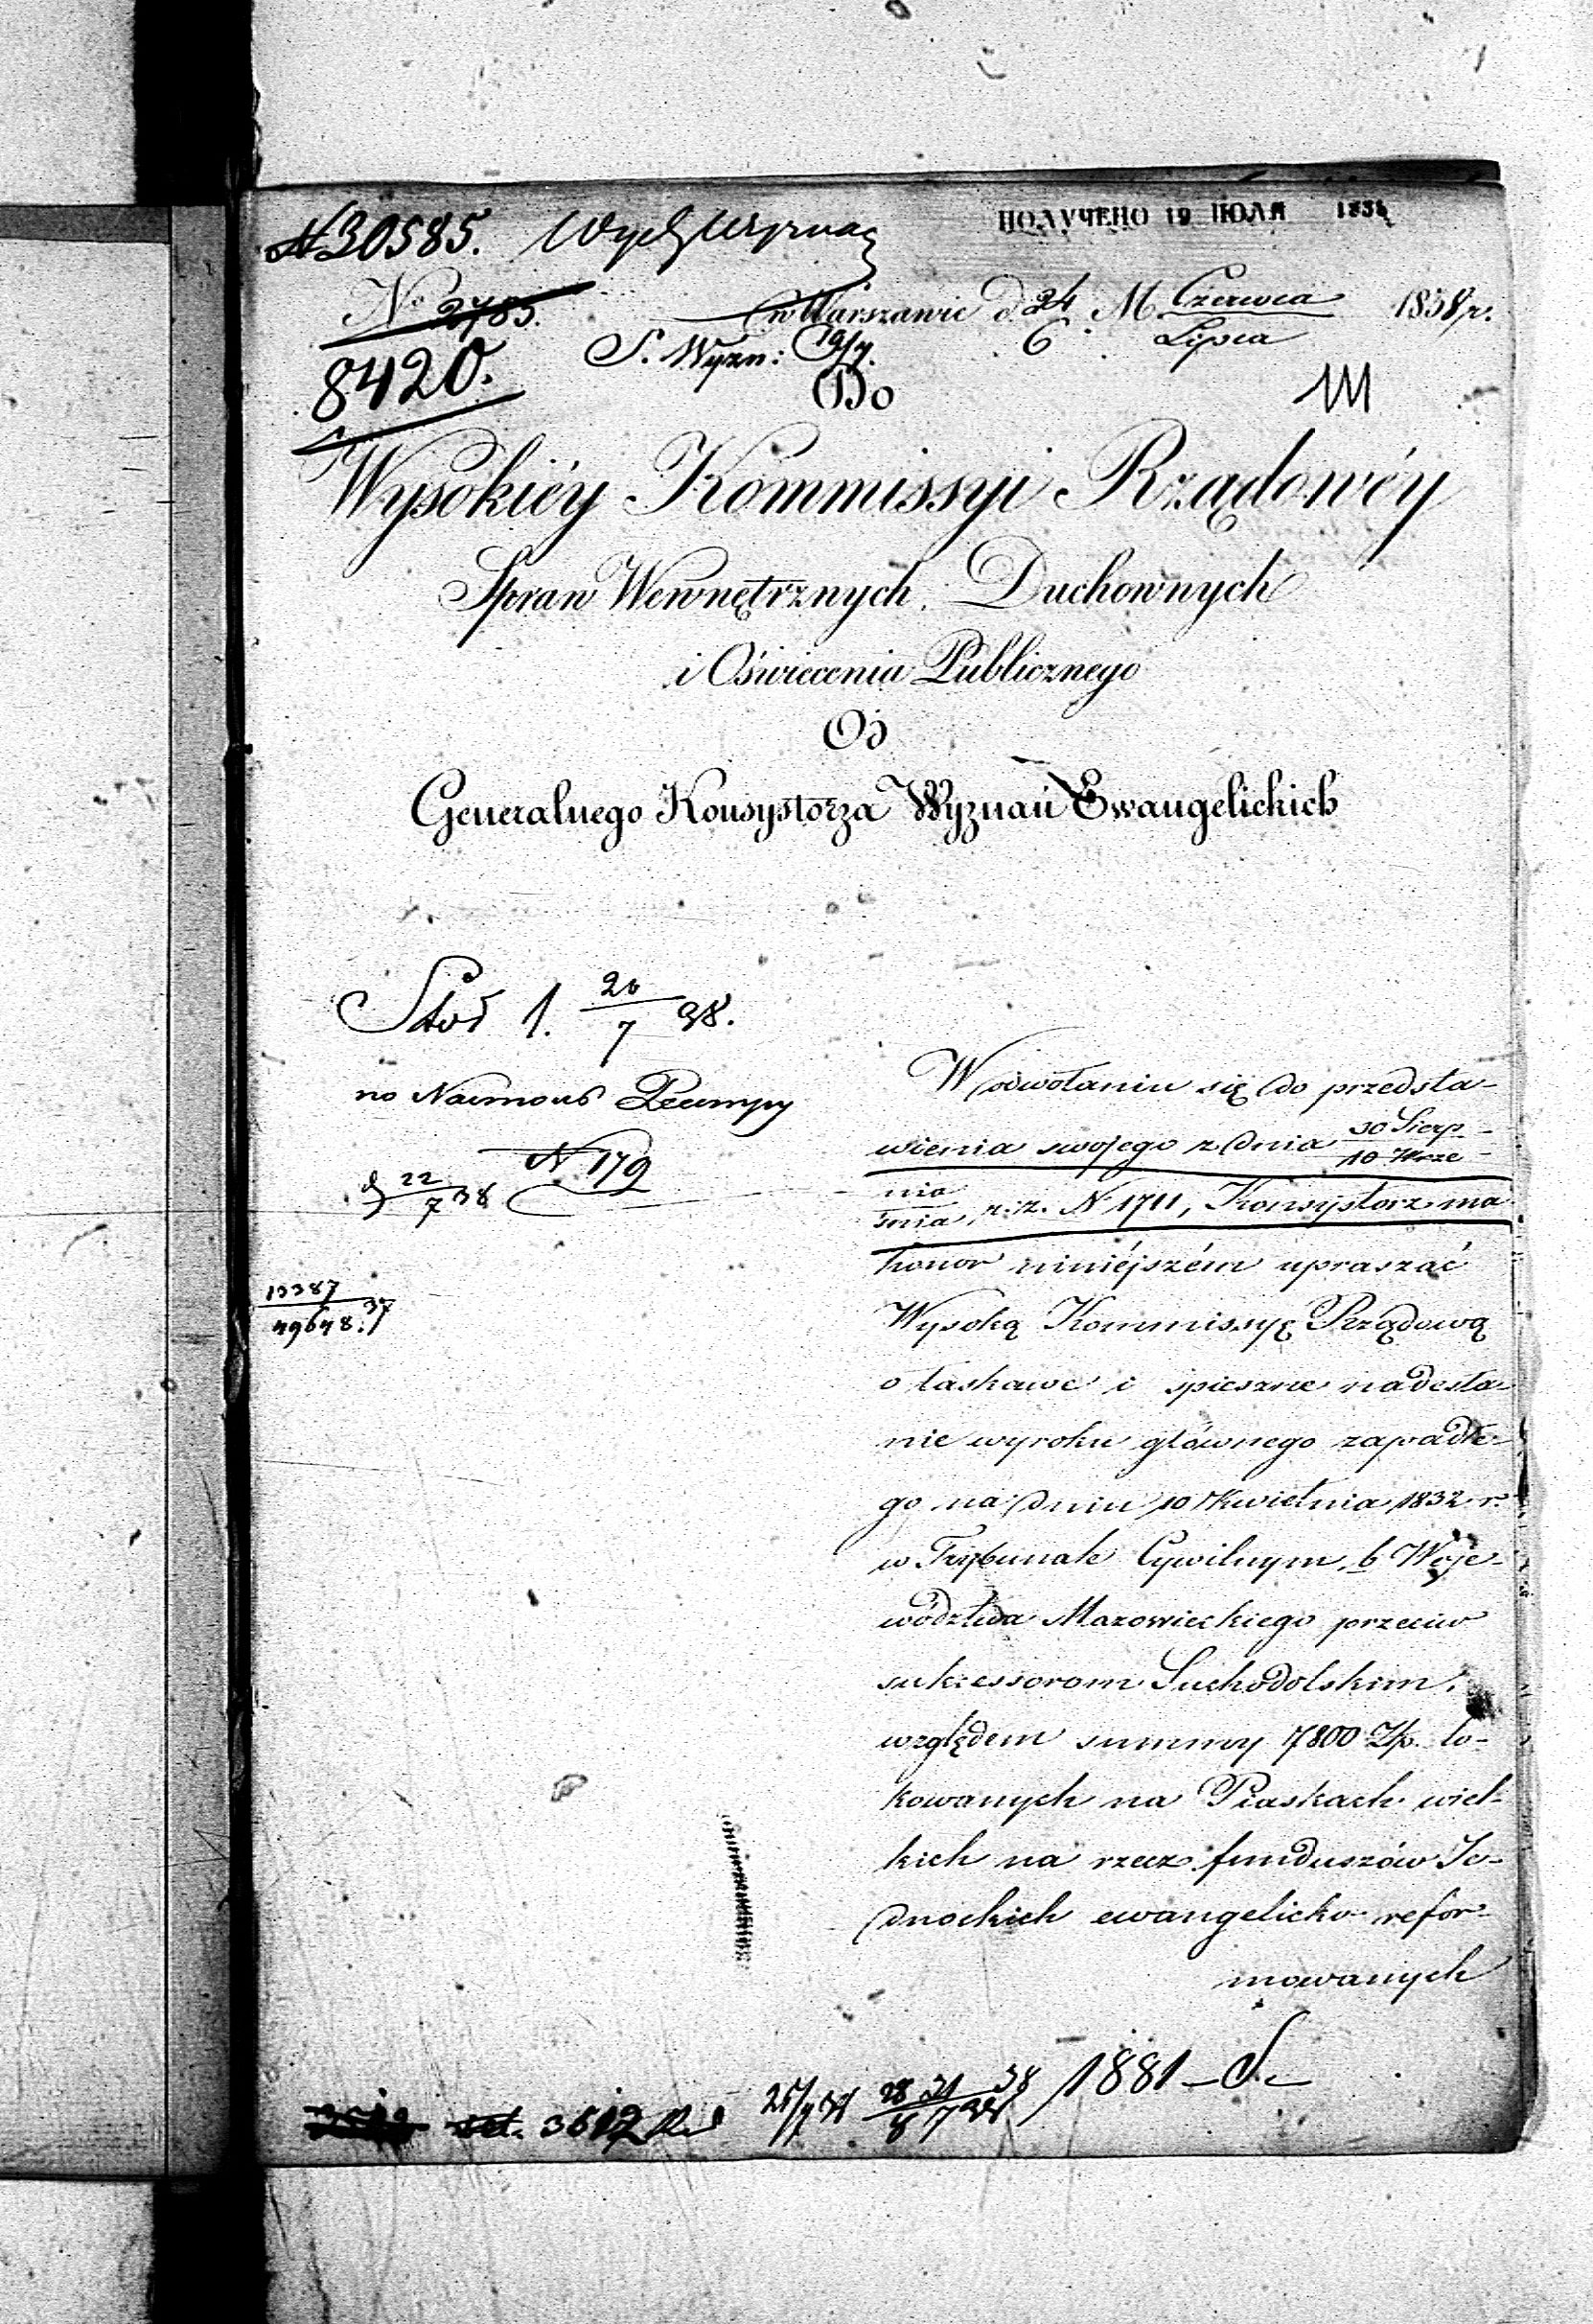 N 30585.
ПОЛУЧЕНО 19 ІЮЛЯ 1838
No 2785.
w Warszawie d. 24/6 M Czerwca/Lipca 1838 r.
S. Wyzn: 19/7.
8420.
Do
Wysokiéy Kommissyi Rządowéy
Spraw Wewnętrznych, Duchownych
i Oświecenia Publicznego
Od
Generalnego Konsystorza Wyznań Ewangelickich
1. 20/7 38.
N 179
22/7 38
13387/49648.37
W odwołaniu się do przedsta-
wienia swojego z dnia 30 Sierp-/10 Wrze-
nia/śnia, r. z. N 1711, Konsystorz ma
honor niniéjszém upraszać
Wysoką Kommissyę Rządową
o łaskawe i spieszne nadesła-
nie wyroku głównego zapadłe-
go na dniu 10 Kwietnia 1832 r.
w Trybunale Cywilnym, b. Woje-
wództwa Mazowieckiego przeciw
sukcessorom Suchodolskim,
względem summy 7800 Złp. lo-
kowanych na Piaskach wiel-
kich na rzecz funduszów Je-
dnockich ewangelicko-refor-
mowanych
3612
1881 - S.